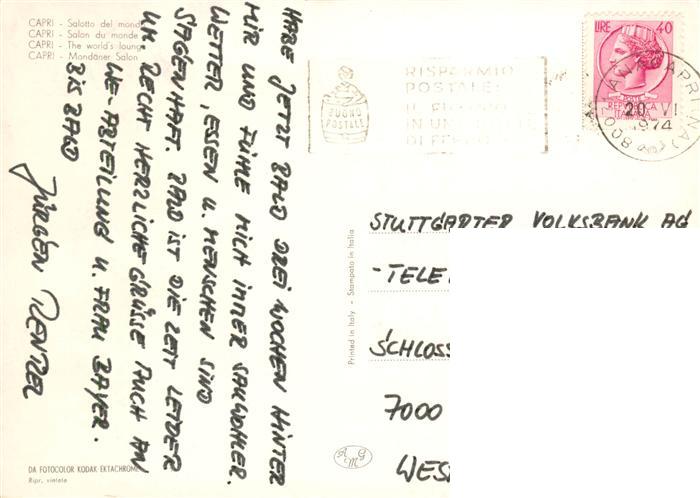 CAPRI - Salotto del mond
CAPRI - Salon du monde
CAPRI - The world's loung
CAPRI - Mondäner Salon
HABE JETZT BALD DREI WOCHEN HINTER
MIR UND FÜHLE MICH IMMER SAUWOHLER.
WETTER, ESSEN U. MENSCHEN SIND
SAGENHAFT. BALD IST DIE ZEIT LEIDER
UM. RECHT HERZLICHE GRÜSSE AUCH AN
WE-ABTEILUNG U. FRAU BAYER.
BIS BALD
JÜRGEN
DA FOTOCOLOR KODAK EKTACHROME
Ripr. vietata
Printed in Italy - Stampato in Italia
AMG
BUONO
POSTALE
RISPARMIO
POSTALE:
IN
DI
LIRE 40
CAPRI (NA)
20 VI
1974
STUTTGARTER VOLKSBANK AG
-TELE
SCHLOSS
7000
WES